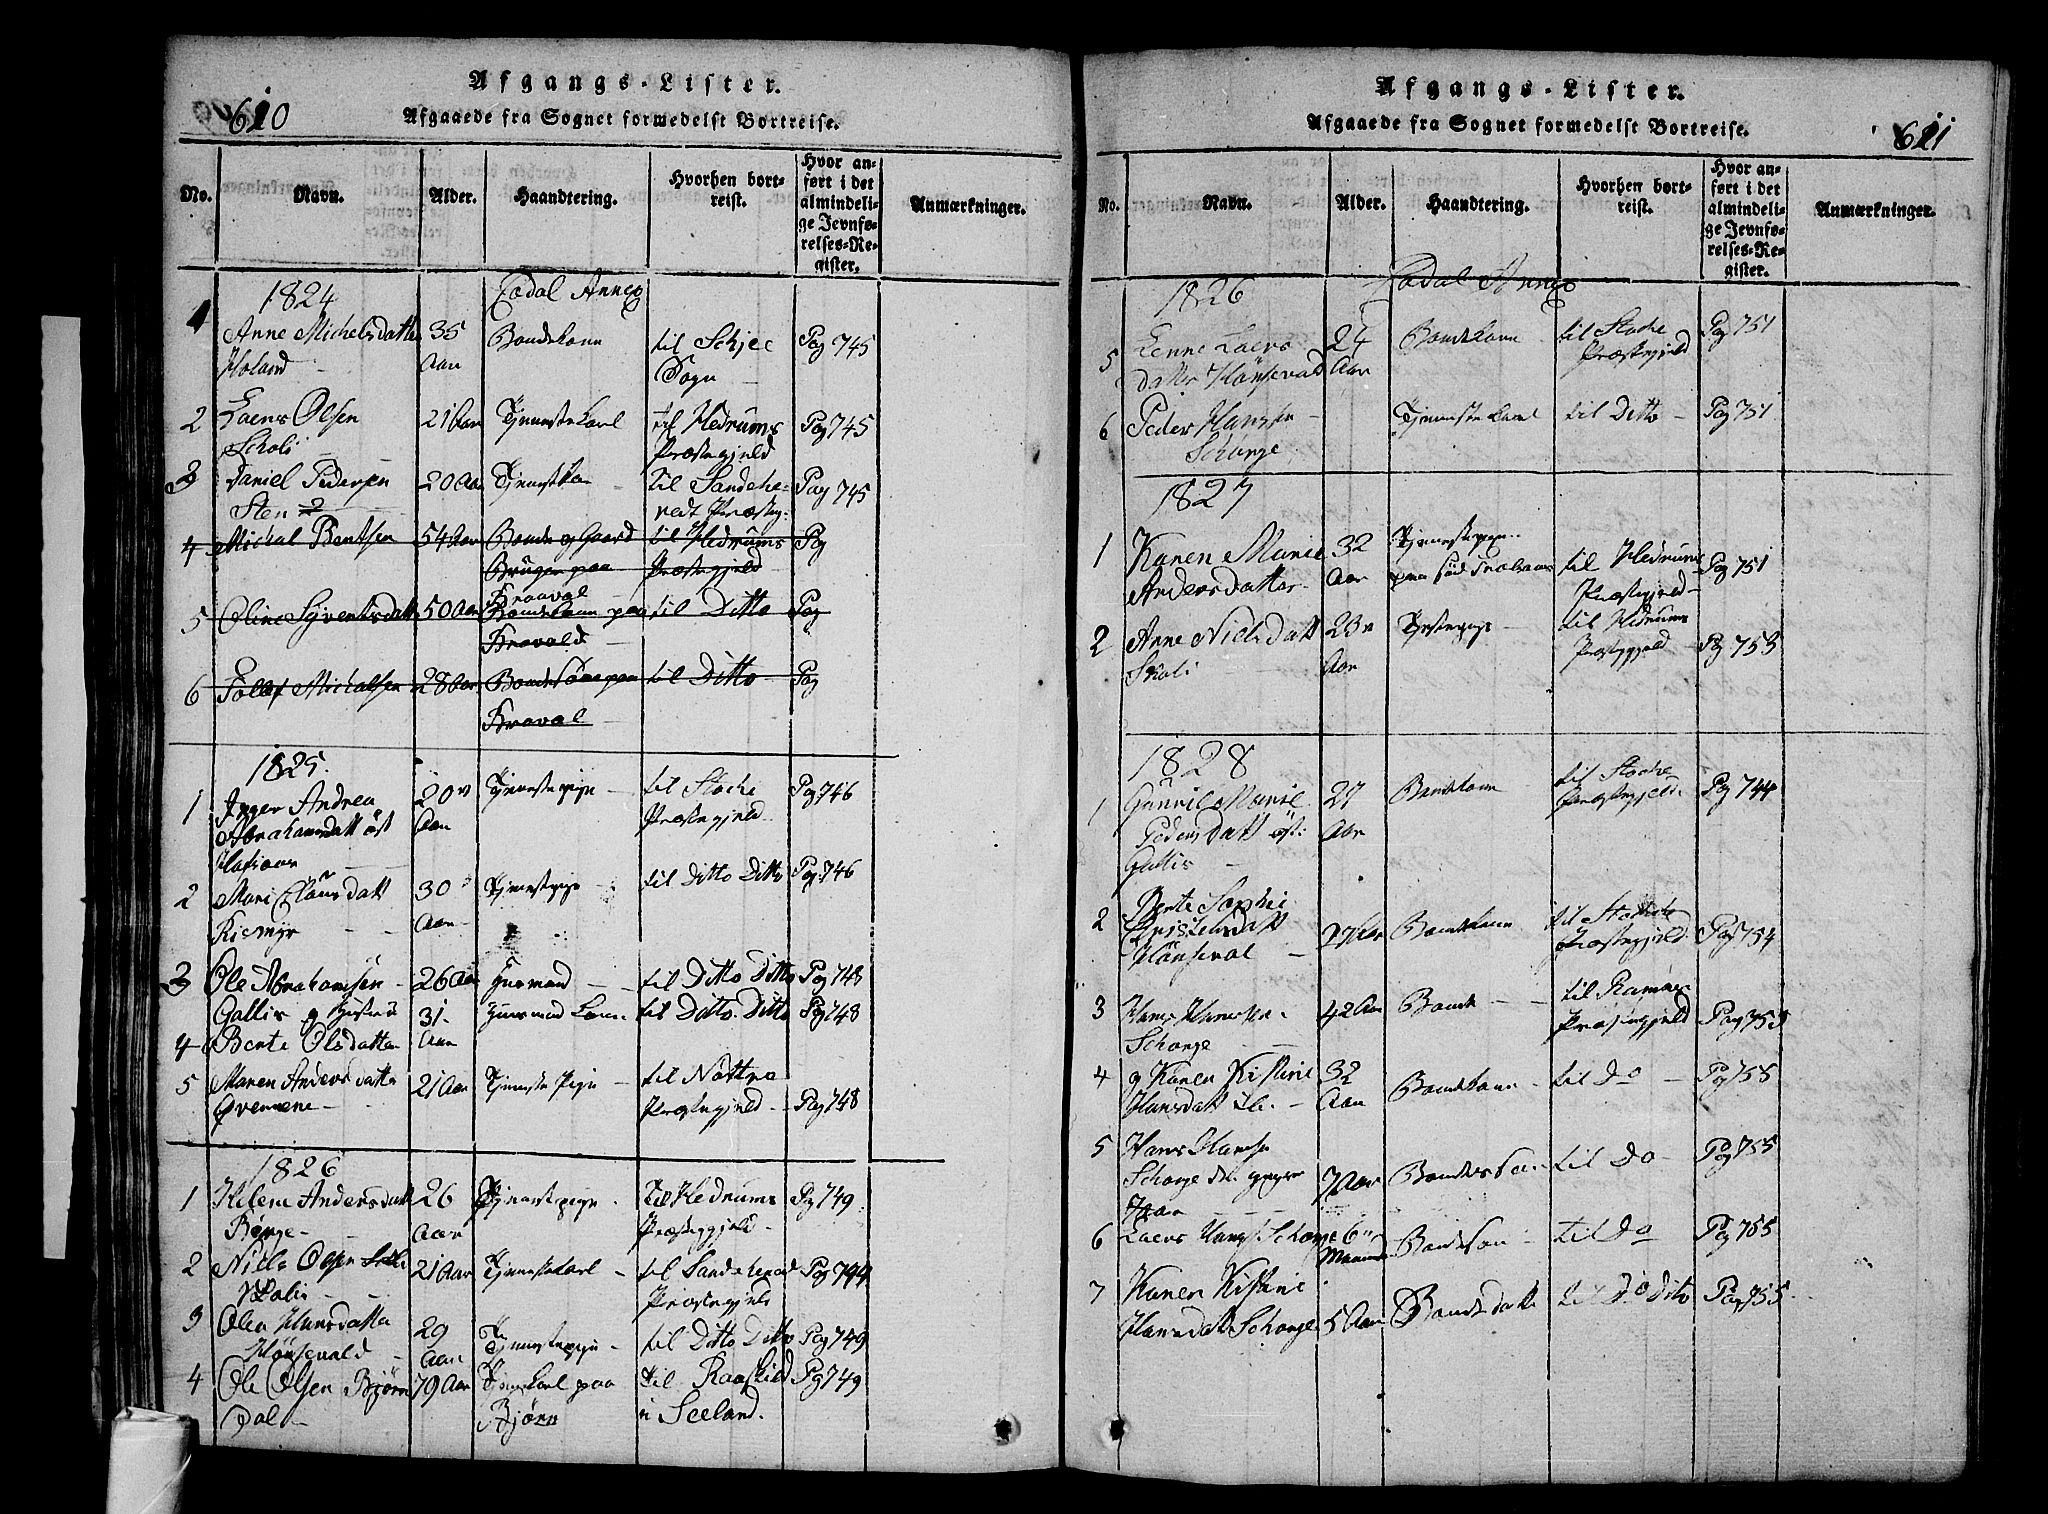 610
Afgangs-Lister.
Afgaaede fra Sognet formedelst Bortreise.
No. Navn. Alder. Haandtering. Hvorhen bortreist. Hvor anført i det almindelige Jevnførelses-Register. Anmærkninger.
1824 Hodal Annex
1 Anne Michelsdatter 35 Bondekone til Schjee Pag 745
Holand Aar Sogn
2 Laers Olsen 21 Aar Tjenestekarl til Hedrums Pag 745
Scholi Præstegjeld
3 Daniel Pedersen 20 Aar til Sandehe- Pag 745
Sten redt Præstg:
4 Michal Bentsen 54 Aar Bonde og Gaard til Hedrums Pag
Bruger paa Præstegjeld
5 50 Aar Bondekone paa til Ditto Pag
6 Michalsen 28 Aar paa til Ditto Pag
1825.
1 Inger Andrea 20 Tjenestepige til Stocke Pag 746
Abrahamsdatt øst Aar Præstegjeld
2 Mari 30 Tjenestepige til Ditto Ditto Pag 746
Aar
3 Ole Abrahamsen 26 Aar Huusmand til Ditto Ditto Pag 748
Gallis og Hustrue 31 til Ditto Ditto Pag 748
4 Berte Olsdatter Aar
5 Maren Andersdatter 21 Aar Tjeneste Pige til Nøttrø
Præstegjeld Pag 748
1826
1 Helene Andersdatt 26 Tjenestepige til Hedrums Pag 749
Berge Aar Præstegjeld
2 Niels Olsen 21 Aar Tjenestekarl til Sandeherred Pag 744
Præstegjeld
3 Olea Hansdatter 29 Tjenestepige til Ditto Ditto Pag 749
Hønsevald Aar
4 Ole Olsen Bjørn 79 Aar paa til Pag 749
Dal Bjørn i Seeland.
611
Afgangs-Lister.
Afgaaede fra Sognet formedelst Bortreise.
No. Navn. Alder. Haandtering. Hvorhen bortreist. Hvor anført i det almindelige Jevnførelses-Register. Anmærkninger.
1826 Hodal Annex
5 Lenne Laers 24 Bondekone til Stocke Pag 751
datter Hønsevald Aar Præstegjeld
6 Peder Hansen Tjenestekarl til Ditto Pag 751
Schorge
1827
1 Karen Marie 32 Tjenestepige til Hedrums Pag 751
Andersdatter Aar paa Præstegjeld
2 Anne Nielsdatt 23 til Hedrums Pag 753
Skoli Aar Præstegjeld
1828
1 Gunnil Marie 27 Bondekone til Stocke Pag 744
Pedersdatt øst: Aar Præstegjeld
Gallis
2 Berte Sophie
27 Aar Bondekone til Stocke Pag 754
Hønseval Præstegjeld
3 Hans Hansen 42 Aar Bonde til Ramnes
Schorge Præstegjeld Pag 755
4 og Karen Kistine 32 Bondekone til Do Pag 755
Hansdatt ib. Aar
5 Hans Hansen til Do Pag 755
Schorge 7 Aar Bondesøn
6 Laers Hans: Schorge 6 Bondesøn til Do Pag 755
7 Karen Kistine til Do Dito Pag 755
Hansdatt Schorge 5 Aar Bondedatter